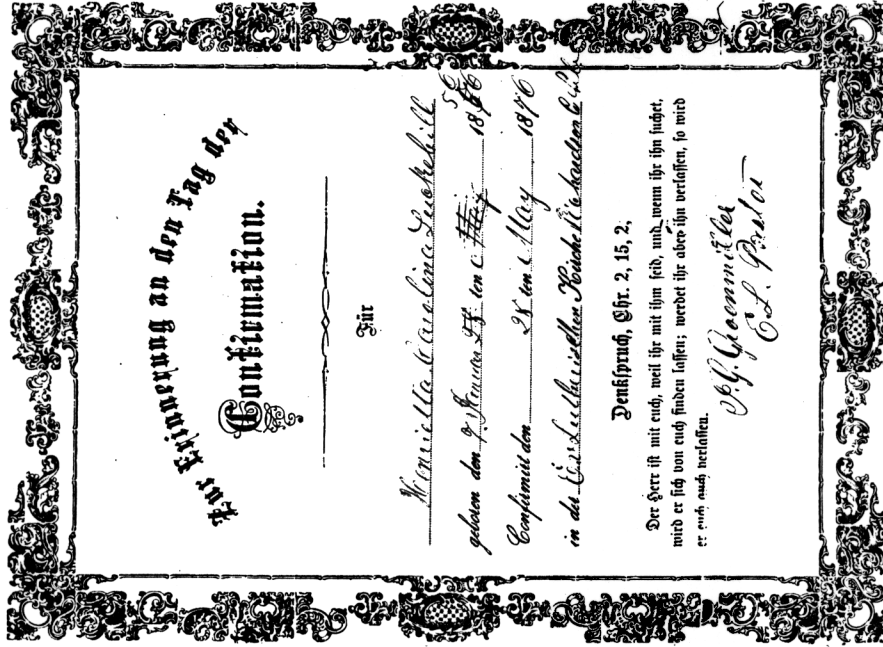 Zur Erinnerung an den Tag der
Confirmation.
Für
Henrietta Carolina Luckehill
geboren den 1856
Confirmirt den 28 ten May 1876
in der Ev. Lutherischen Kirche
Denkspruch, Chr. 2, 15, 2,
Der Herr ist mit euch, weil ihr mit ihm seid, und wenn ihr ihn suchet,
wird er sich von euch finden lassen; werdet ihr aber ihn verlassen, so wird
er euch auch verlassen.
J. G. Groenmiller
Pastor